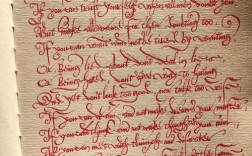 If you can trust yourself when all men doubt you
But make allowance for their doubting too
If you can wait and not be tired by waiting
Or being lied about don't deal in lies
Or being hated don't give way to hating
And yet don't look too good, nor talk too wise
If you can dream and not make dreams your master
If you can think and not make thoughts your aim
If you can meet with triumph and